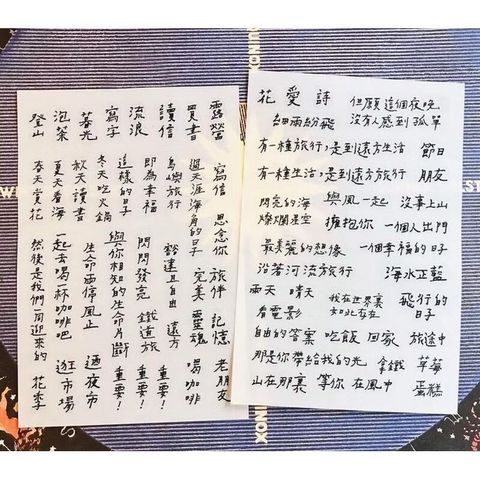 露營 寫信 思念你 旅伴 記憶 老朋友
買書 過天涯海角的日子 完美 靈魂 喝咖啡
讀信 島嶼旅行 豁達且自由 遠方 重要！
流浪 即為幸福 閃閃發亮 鐵道旅 重要！
寫字 這樣的日子 與你相知的生命片斷 重要！
暮光 冬天吃火鍋
秋天讀書 生命雨停風止 過夜市
泡茶 夏天看海 一起去喝一杯咖啡吧 逛市場
登山 春天賞花 然後是我們一同迎來的 花季
花愛詩 但願這個夜晚
細雨紛飛 沒有人感到孤單
有一種旅行，是到遠方生活 節日
有一種生活，是到遠方旅行 朋友
閃亮的海 與風一起 沒事上山
燦爛星空 擁抱你 一個人出門
最美麗的想像 一個幸福的日子
沿著河流旅行 海水正藍
雨天 晴天 我在世界裏 飛行的
看電影 如此存在 日子
自由的答案 吃飯 回家 旅途中
那是你帶給我的光 拿鐵 草莓
山在那裏 等你 在風中 蛋糕
XONI